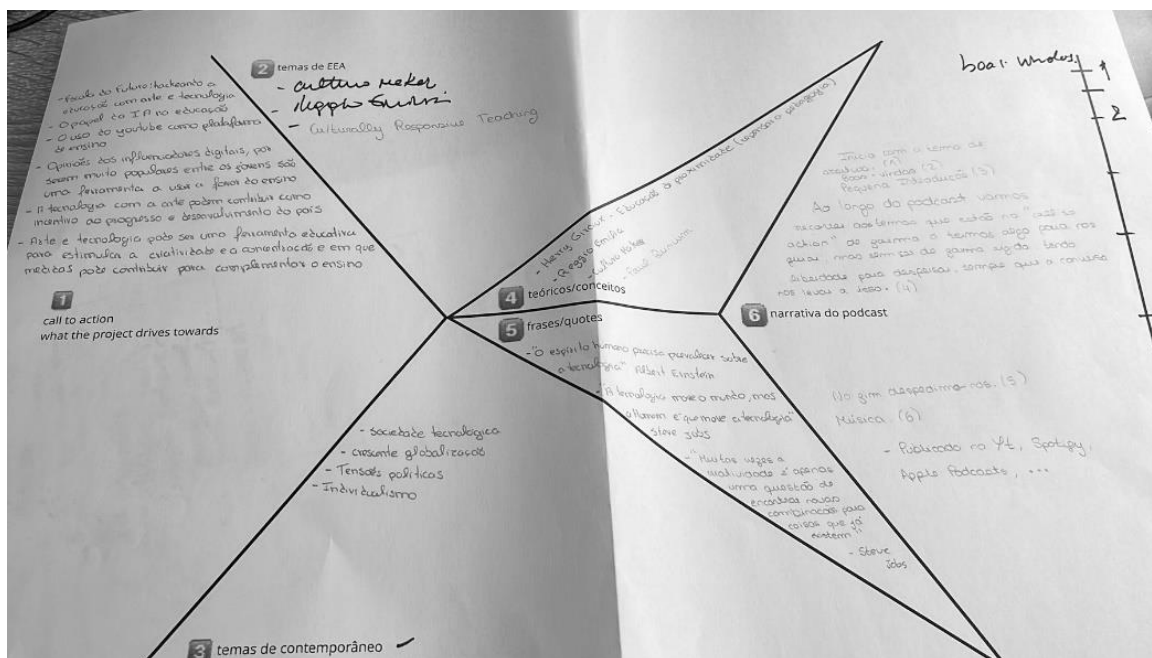 2 temas de EEA
- cultura maker
- Reggio Emilia
- Culturally Responsive Teaching
- Escola do Futuro: hackeando a
educação com arte e tecnologia
- O papel da IA na educação
- O uso do youtube como plataforma
de ensino
- Opiniões dos influenciadores digitais, por
serem muito populares entre os jovens são
uma ferramenta a usar a favor do ensino
- A tecnologia com a arte podem contribuir como
incentivo ao progresso e desenvolvimento do país
- Arte e tecnologia pode ser uma ferramenta educativa
para estimular a criatividade e a concentração e em que
medidas pode contribuir para complementar o ensino
1
call to action
what the project drives towards
- sociedade tecnológica
- crescente globalização
- Tensões políticas
- Individualismo
3 temas de contemporâneo
- Henry Giroux - Educação de proximidade
- Reggio Emilia
- Cultura Maker
- Paul
4 teóricos/conceitos
5 frases/quotes
- "O espírito humano precisa prevalecer sobre
a tecnologia" Albert Einstein
- "A tecnologia move o mundo, mas
é que move a tecnologia"
Steve Jobs
- "Muitas vezes a
criatividade é apenas
uma questão de
encontrar novas
combinações para
coisas que já
existem"
- Steve
Jobs
boas-vindas
1
2
Inicia com o tema de
(1)
Boas-vindas (2)
Pequena Introdução (3)
Ao longo do podcast vamos
recorrer aos temas que estão no "call to
action" de garantir termos algo para nos
guiar, mas sem ser de forma rígida tendo
liberdade para dispersar, sempre que a conversa
nos levar a isso. (4)
6 narrativa do podcast
No fim despedimo-nos. (5)
Música. (6)
- Publicado no Yt, Spotify,
Apple Podcasts, ...